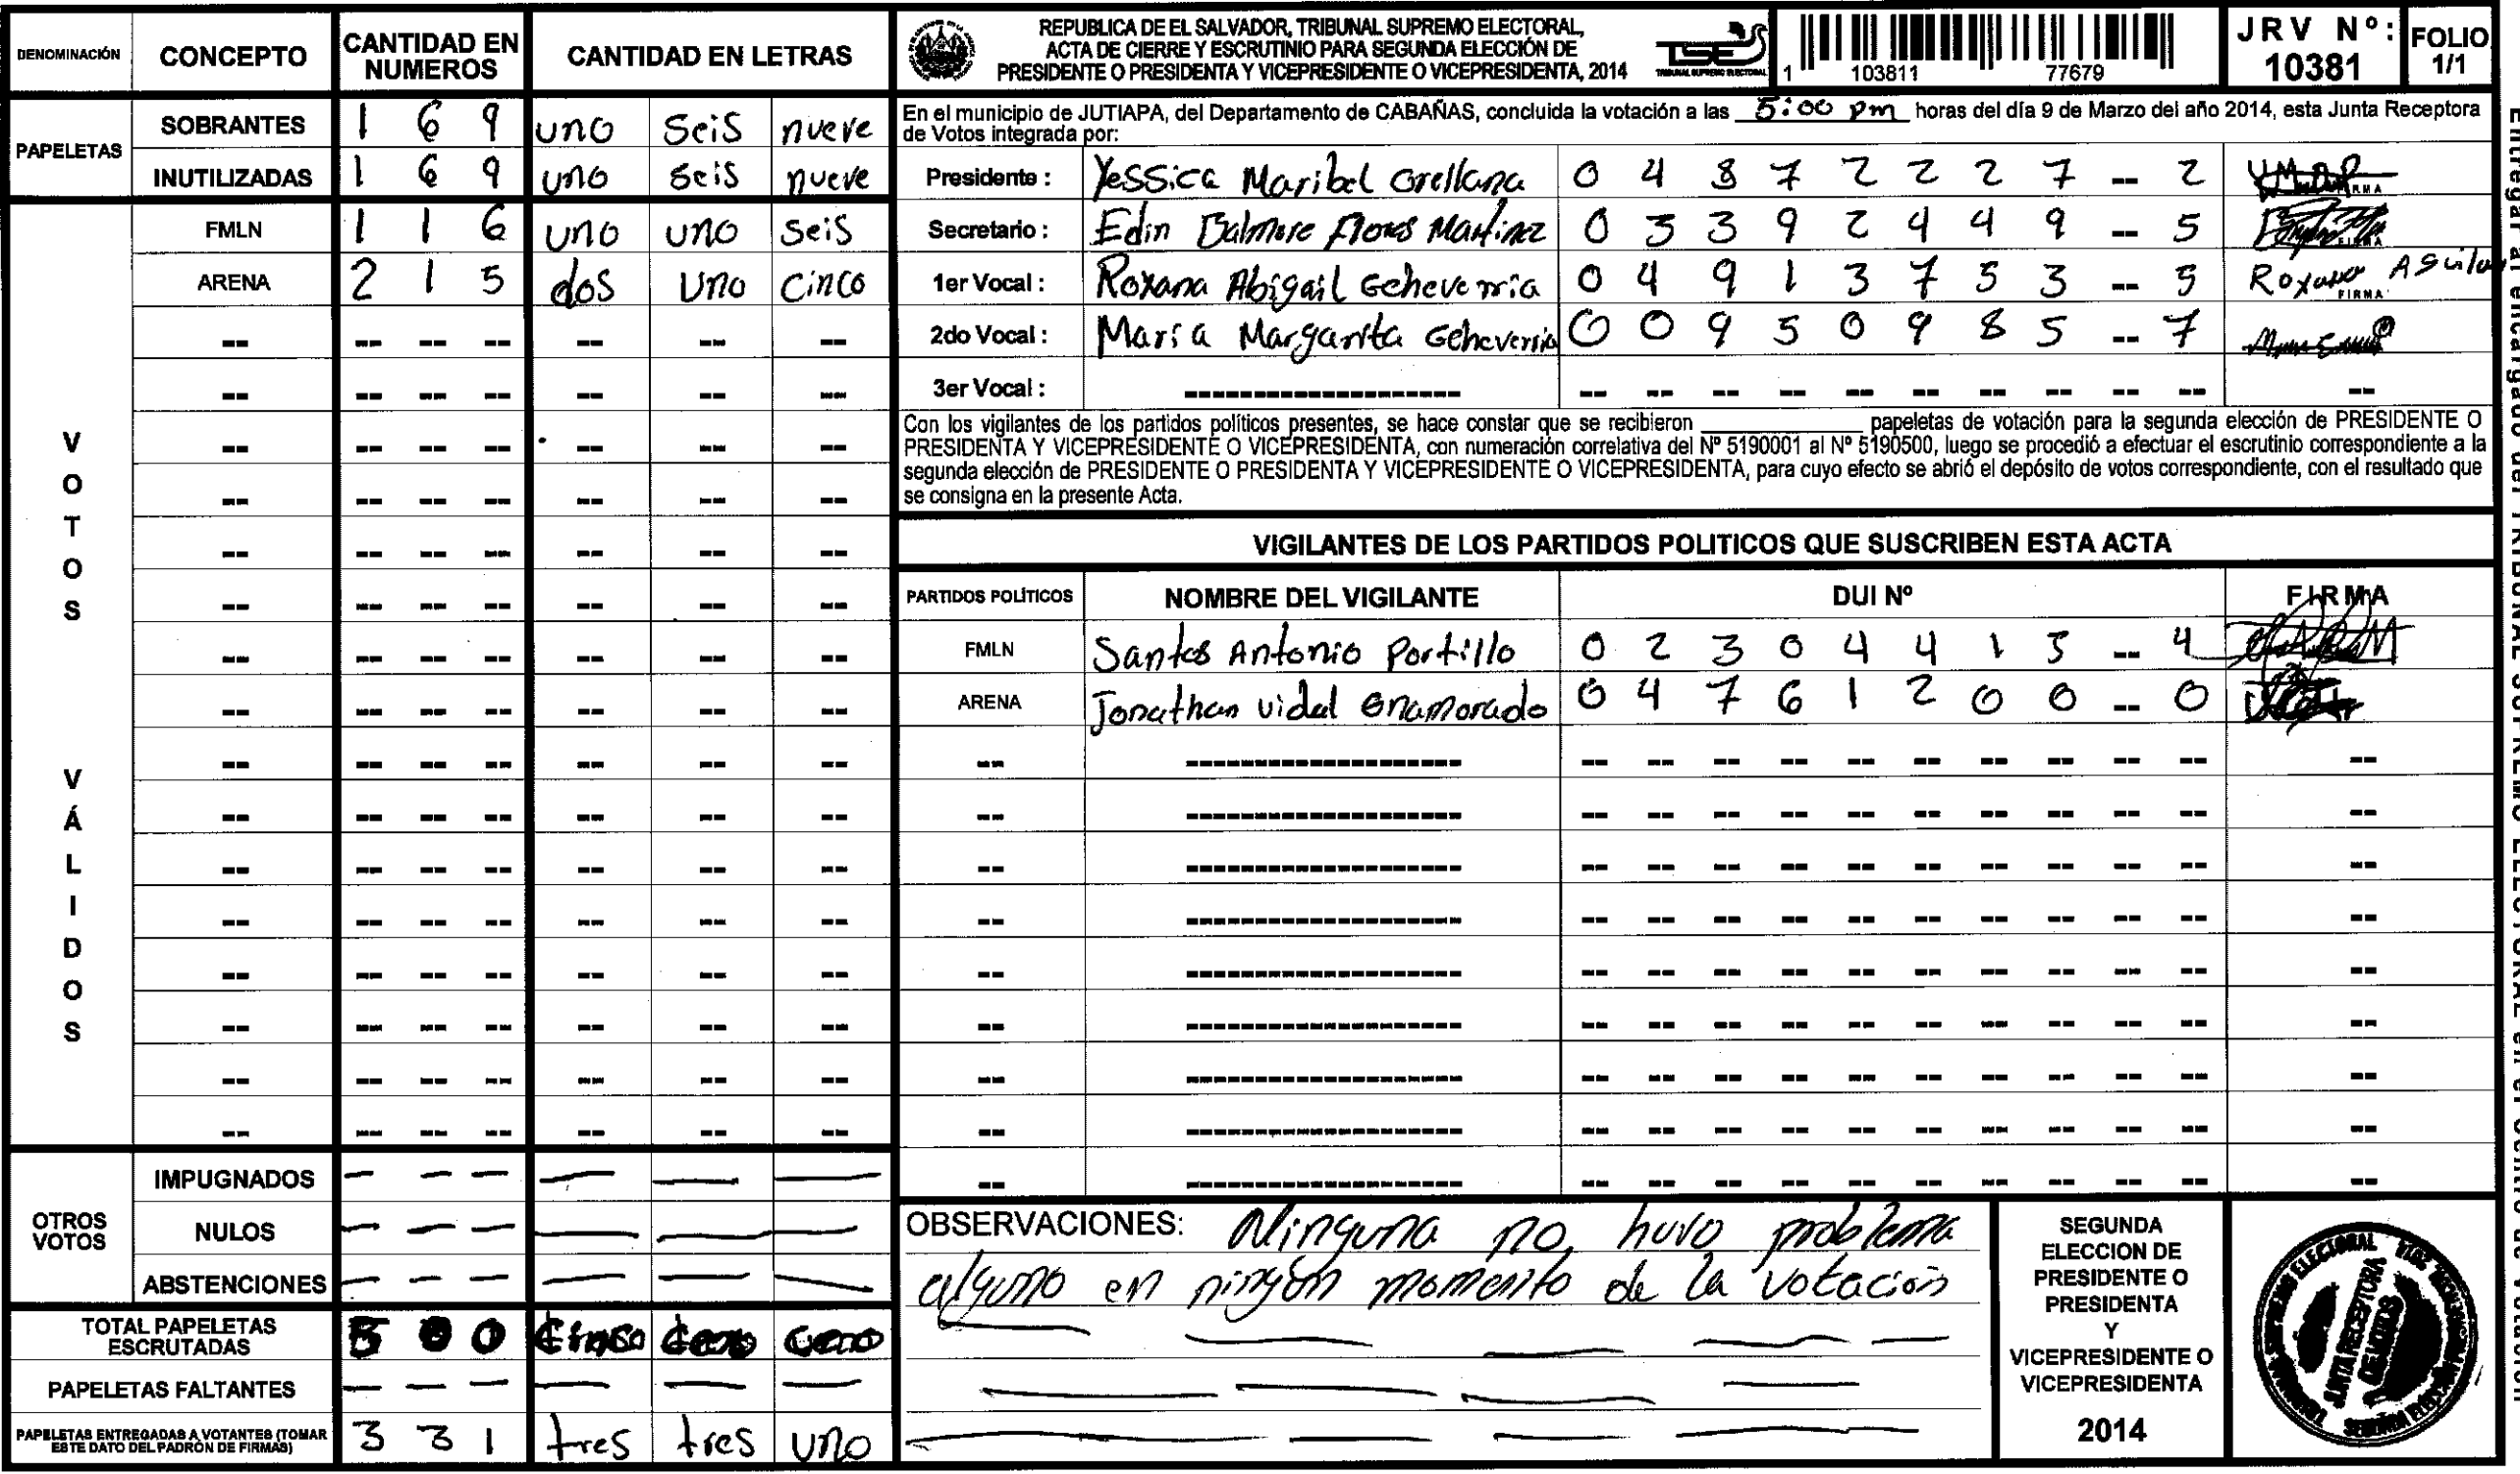 DENOMINACIÓN CONCEPTO CANTIDAD EN NUMEROS CANTIDAD EN LETRAS
PAPELETAS
SOBRANTES 1 6 9 uno seis nueve
INUTILIZADAS 1 6 9 uno seis nueve
VOTOS VÁLIDOS
FMLN 1 1 6 uno uno seis
ARENA 2 1 5 dos uno cinco
OTROS VOTOS
IMPUGNADOS — — — — — —
NULOS — — — — — —
ABSTENCIONES — — — — — —
TOTAL PAPELETAS ESCRUTADAS 5 0 0 Cinco Cero Cero
PAPELETAS FALTANTES — — — — — —
PAPELETAS ENTREGADAS A VOTANTES (TOMAR ESTE DATO DEL PADRÓN DE FIRMAS) 3 3 1 tres tres uno
REPUBLICA DE EL SALVADOR, TRIBUNAL SUPREMO ELECTORAL,
ACTA DE CIERRE Y ESCRUTINIO PARA SEGUNDA ELECCIÓN DE
PRESIDENTE O PRESIDENTA Y VICEPRESIDENTE O VICEPRESIDENTA, 2014
TSE
TRIBUNAL SUPREMO ELECTORAL
1 103811 77679
JRV Nº: 10381
FOLIO 1/1
En el municipio de JUTIAPA, del Departamento de CABAÑAS, concluida la votación a las 5:00 pm horas del día 9 de Marzo del año 2014, esta Junta Receptora
de Votos integrada por:
Presidente : Yessica Maribel Orellana 0 4 8 7 2 2 2 7 -- 2 FIRMA
Secretario : Edin Dalmore Flores Martinez 0 3 3 9 2 4 4 9 -- 5 FIRMA
1er Vocal : Roxana Abigail Echeverria 0 4 9 1 3 7 5 3 -- 5 Roxana Aguilar FIRMA
2do Vocal : Maria Margarita Echeverria 0 0 9 5 0 9 8 5 -- 7
3er Vocal :
Con los vigilantes de los partidos políticos presentes, se hace constar que se recibieron ______ papeletas de votación para la segunda elección de PRESIDENTE O
PRESIDENTA Y VICEPRESIDENTE O VICEPRESIDENTA, con numeración correlativa del Nº 5190001 al Nº 5190500, luego se procedió a efectuar el escrutinio correspondiente a la
segunda elección de PRESIDENTE O PRESIDENTA Y VICEPRESIDENTE O VICEPRESIDENTA, para cuyo efecto se abrió el depósito de votos correspondiente, con el resultado que
se consigna en la presente Acta.
VIGILANTES DE LOS PARTIDOS POLITICOS QUE SUSCRIBEN ESTA ACTA
PARTIDOS POLÍTICOS NOMBRE DEL VIGILANTE DUI Nº FIRMA
FMLN Santos Antonio Portillo 0 2 3 0 4 4 1 3 -- 4
ARENA Jonathan Vidal Enamorado 0 4 7 6 1 2 0 0 -- 0
OBSERVACIONES: Ninguna no, huvo problema
alguno en ningún momento de la votación
SEGUNDA
ELECCION DE
PRESIDENTE O
PRESIDENTA
Y
VICEPRESIDENTE O
VICEPRESIDENTA
2014
JUNTA RECEPTORA
DE VOTOS
Entregar al encargado del TRIBUNAL SUPREMO ELECTORAL en el Centro de Votación